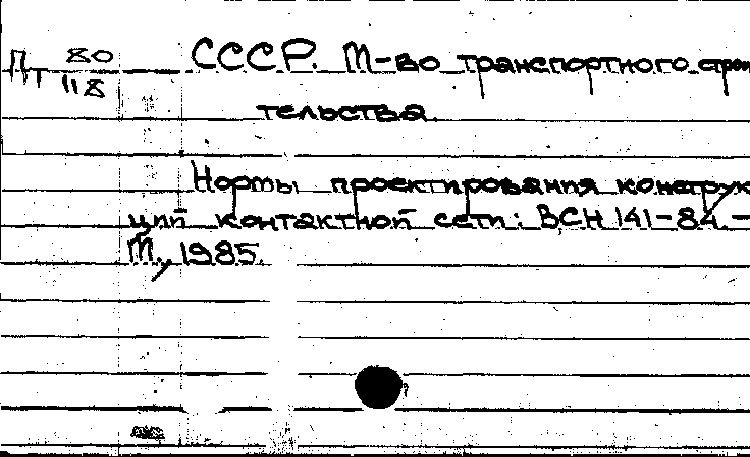 П 80 СССР. М-во транспортного строи
Пт 118
тельства.
Нормы проектирования конструк
ций контактной сети: ВСН 141-84. –
М., 1985.